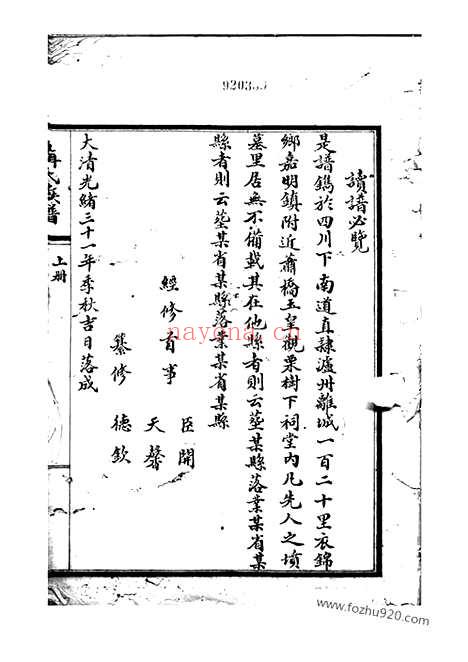 920385
讀譜必覽
是譜鐫於四川下南道直隸瀘州離城一百二十里衣錦
鄉嘉明鎮附近蕭橋玉皇觀栗樹下祠堂內凡先人之墳
墓里居無不備載其在他縣者則云塟某縣落業某省某
縣者則云塟某省某縣落業某省某縣
經修首事
臣開
天馨
纂修 德欽
大清光緒三十一年季秋吉日落成
氏族譜
上册
nayona.cn
www.fozhu920.com